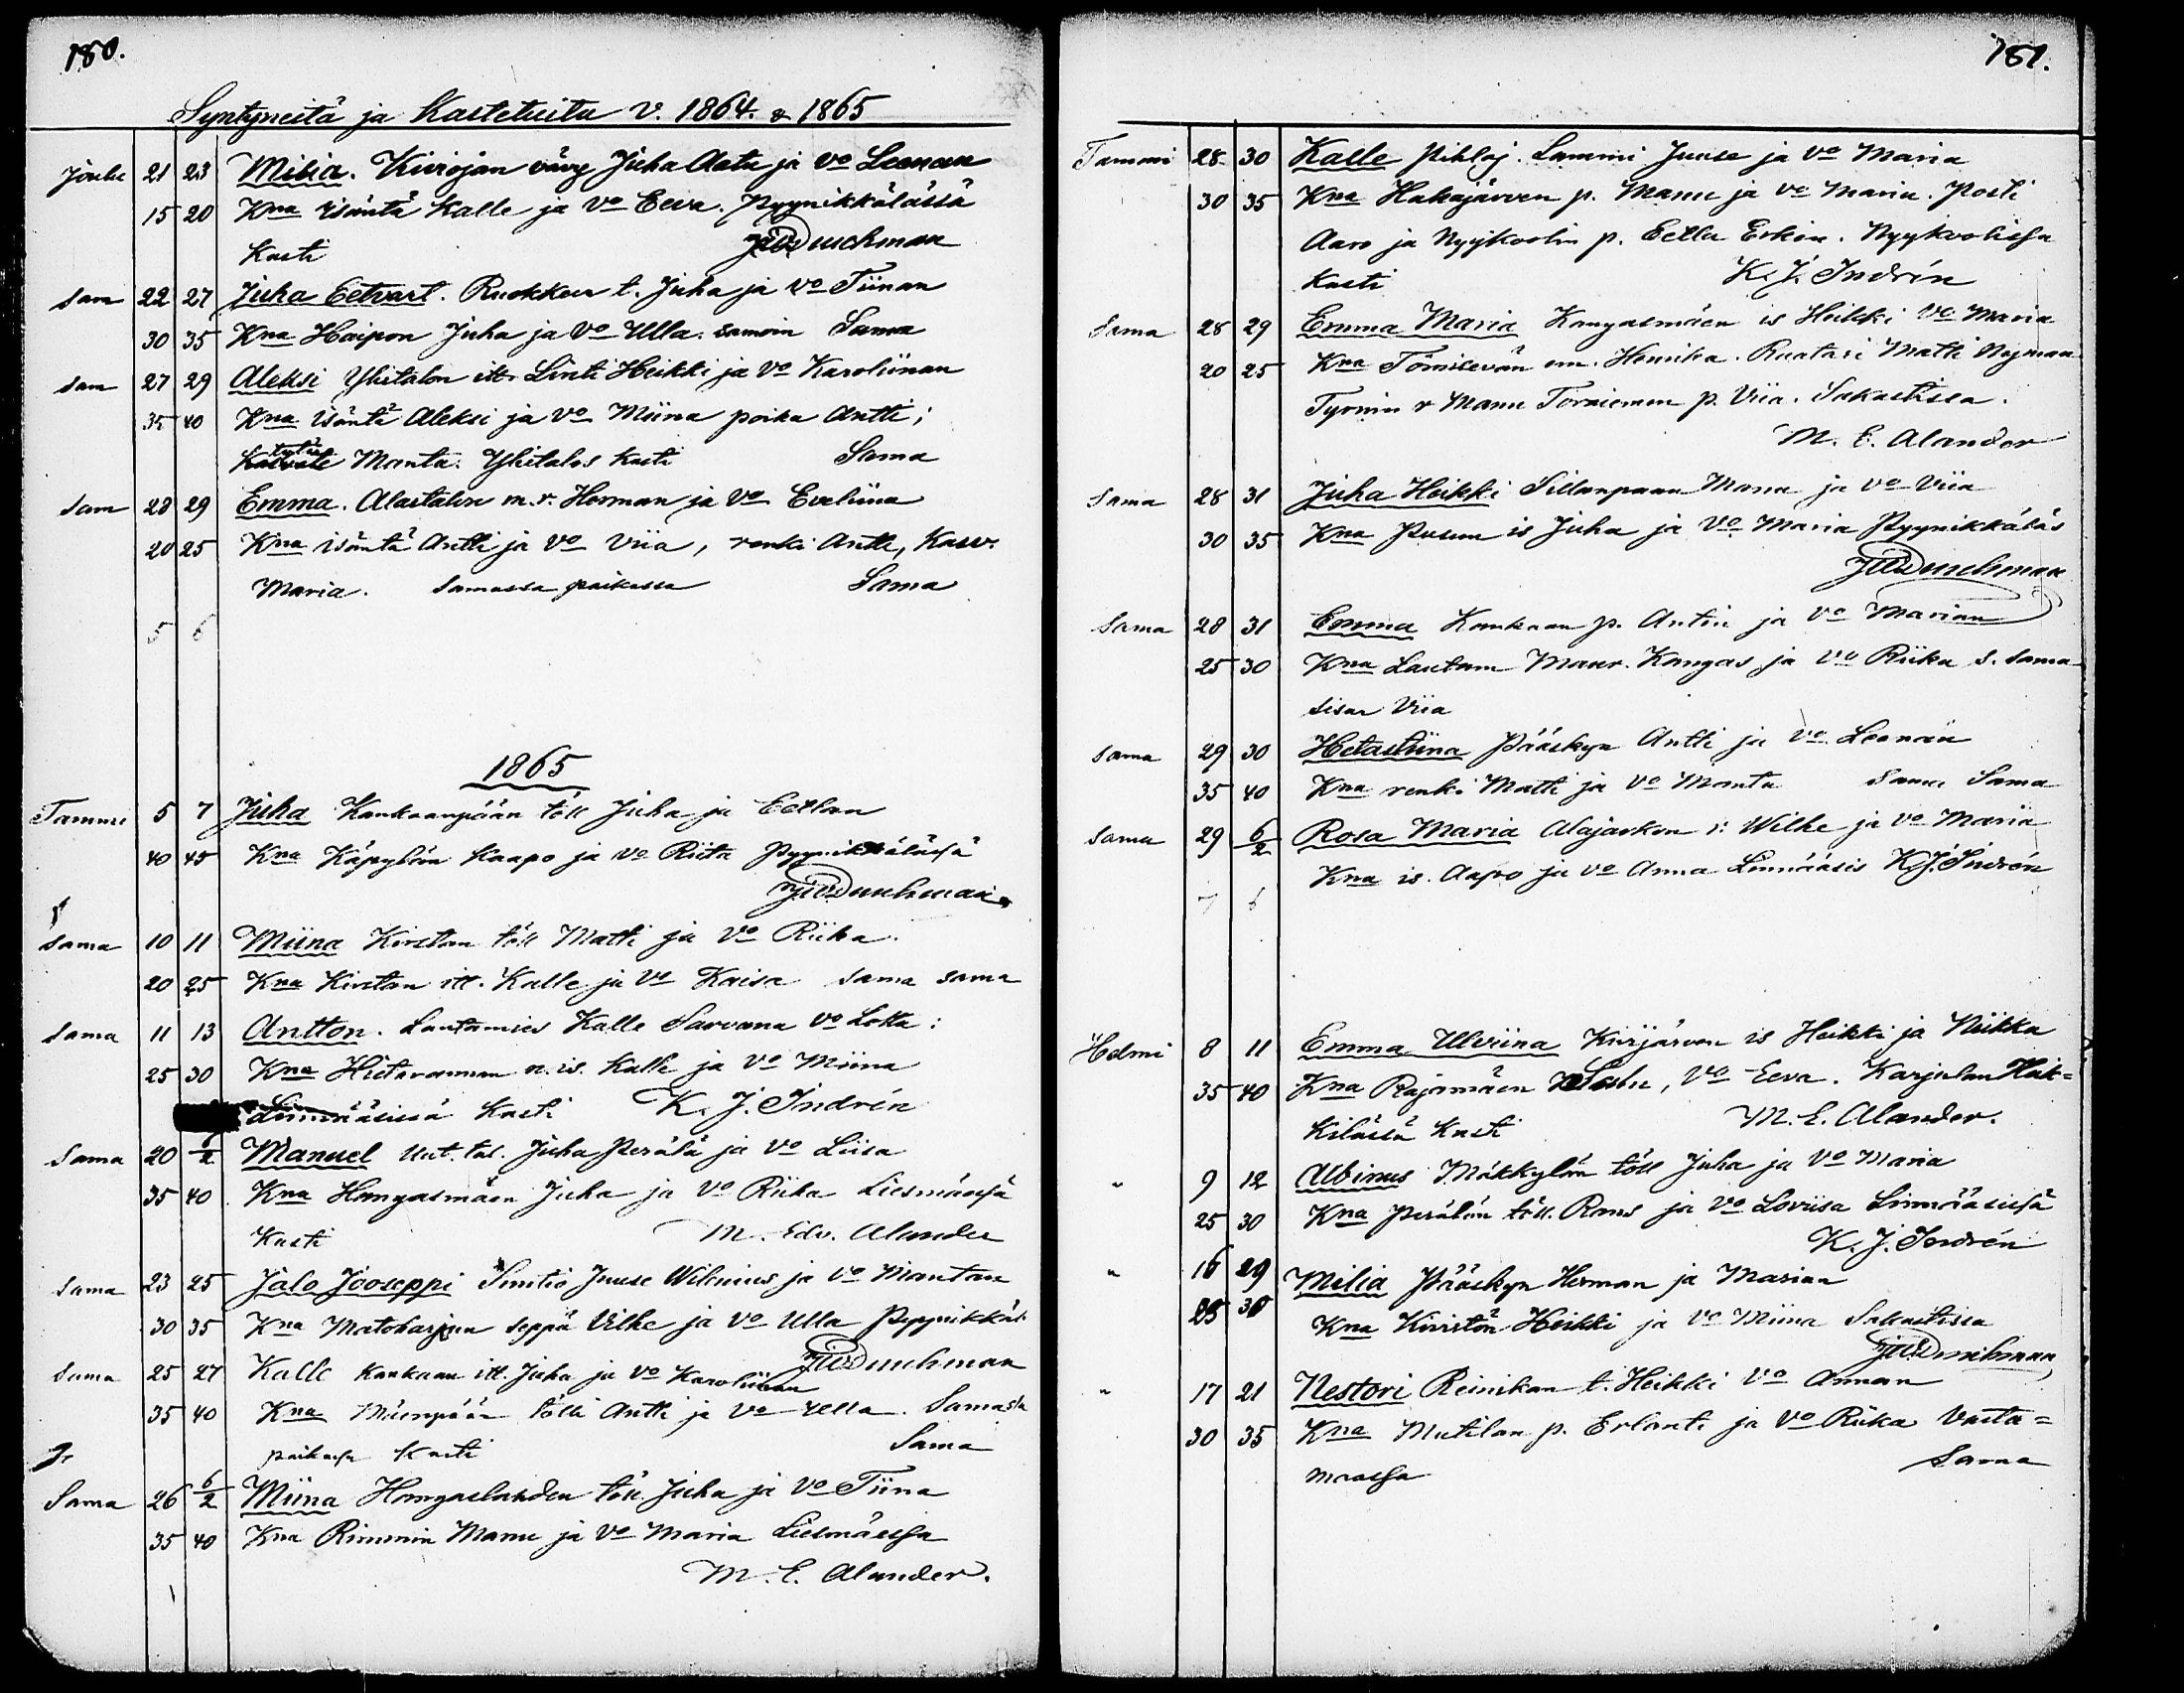 180.
Syntyneitä ja Kastetuita v. 1864. & 1865
Joulu 21 23 Milia. Kiviojan vävy Juha Aatu ja vo Leenan
15 20 Kna isäntä Kalle ja vo Eeva. Pyynikkälässä
Kasti
sam 22 27 Juha Eetvart. Ruokkeen t. Juha ja vo Tiinan
30 35 Kna Haipon Juha ja vo Ulla. samoin Sama
sam 27 29 Aleksi Ylitalon itt. Linti Heikki ja vo Karoliinan
35 40 Kna isäntä Aleksi ja vo Miina poika Antti;
tytär Manta. Ylitalos Kasti Sama
sam 28 29 Emma. Alastalon m. r. Herman ja vo Eveliina
20 25 Kna isäntä Antti ja vo Viia, renki Antti, Kasv.
Maria. Samassa paikassa Sama
5 6
1865
Tammi 5 7 Juha Kankaanpään töll Juha ja Eetlan
40 45 Kna Käpylän Kaapo ja vo Riita Pyynikkälässä
sama 10 11 Miina Kivitan töll Matti ja vo Riika.
20 25 Kna Kivitan itl. Kalle ja vo Kaisa sama sama
sama 11 13 Antton. Lautamies Kalle Sarvana vo Lotta:
25 30 Kna Hietarannan n. is. Kalle ja vo Miina
Linnääsissä Kasti K. J. Indrén
Sama 20 6/2 Manuel Uut. tal. Juha Perälä ja vo Liisa
35 40 Kna Hangasmäen Juha ja vo Riika Liesmäessä
Kasti M. Edv. Alander
sama 23 25 Jalo Jooseppi Suntio Juuse Wilenius ja vo Mantan
30 35 Kna Matoharjun seppä Vilhe ja vo Ulla Pyynikkäl.
sama 25 27 Kalle Kankaan itl. Juha ja vo Karoliinan
35 40 Kna Mäenpään tölli Antti ja vo Ulla. Samassa
paikassa Kasti Sama
Sama 26 6/2 Miina Hangaslahden töll. Juha ja vo Tiina
35 40 Kna Rimmin Manu ja vo Maria Liesmäessä
M. E. Alander.
181.
Tammi 28 30 Kalle Pihlaj. Lammi Juuse ja vo Maria
30 35 Kna Hakajärven p. Manu ja vo Maria. Posti
Aaro ja Nyykoolin p. Eetla Erkin. Nyykoolissa
Kasti K. J. Indrén
Sama 28 29 Emma Maria Kangasmäen is Heikki vo Maria
20 25 Kna Tömilevän em. Hemika. Ruatari Matti Nyman
Tyrnin r Manu Torniemen p. Viia. Sakastissa.
M. E. Alander
Sama 28 31 Juha Heikki Sillanpään Manu ja vo Viia
30 35 Kna Pusun is Juha ja vo Maria Pyynikkäläs
Sama 28 31 Emma Kankaan p. Antin ja vo Marian
25 30 Kna Lautam Maur. Kangas ja vo Riika s. sama
sisar Viia
sama 29 30 Hetastiina Pääskyn Antti ja vo Leenan
35 40 Kna renki Matti ja vo Manta Sama Sama
sama 29 6/2 Rosa Maria Alajaskon r: Wilhe ja vo Maria
Kna is. Aapo ja vo Anna Linnääsis K.J. Indrén
Helmi 8 11 Emma Ulviina Kiirjärven is Heikki ja Niikka
35 40 Kna Rajamäen, vo Eeva. Karjulan Häk=
kilässä Kasti M. E. Alander.
" 9 12 Albinus Mäkkylän töll Juha ja vo Maria
25 30 Kna Perälän töll. Rans ja vo Loviisa Linnääsissä
K. J. Indrén
" 16 29 Milia Pääskyn Herman ja Marian
25 30 Kna Kivistön Heikki ja vo Miina Sakastissa
" 17 21 Nestori Reinikan t. Heikki vo Annan
30 35 Kna Mutilan p. Erlanti ja vo Riika Vasta=
maassa Sama